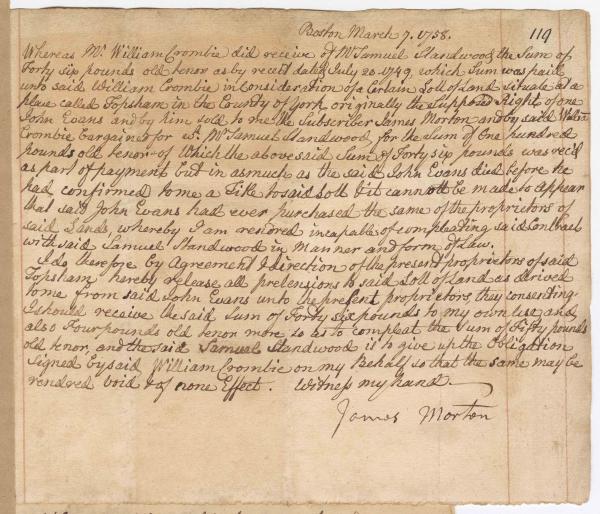 Boston March 7. 1758.
119
Whereas Mr William Crombie did receive of Mr Samuel Standwood the Sum of
Forty Six pounds old tenor as by receit dated July 20. 1749. which Sum was paid
unto said William Crombie in Consideration of a Certain Lott of Land situate at a
place called Topsham in the County of York originally the Supposed Right of one
John Evans and by him sold to me the Subscriber James Morton and by said Willm
Crombie bargained for wth Mr Samuel Standwood for the Sum of One hundred
pounds old tenor of Which the abovesaid Sum of Forty six pounds was recd
as part of payment but in asmuch as the said John Evans died before he
had confirmed to me a Title to said Lott & it cannot be made to appear
that said John Evans had ever purchased the same of the proprietors of
said Lands, whereby I am rendred incapable of compleating said Contract
with said Samuel Standwood in Manner and form of Law.
I do therefore by Agreement & direction of the present proprietors of said
Topsham hereby release all pretensions to said Lott of Land as derived
to me from said John Evans unto the present proprietors, they consenting
I should receive the said Sum of Forty six pounds to my own use and
also Four pounds old tenor more so as to compleat the Sum of Fifty pounds
old tenor, and the said Samuel Standwood is to give up the Obligation
Signed by said William Crombie on my Behalf so that the same may be
rendred void & of none Effect. Witness my hand.
James Morton